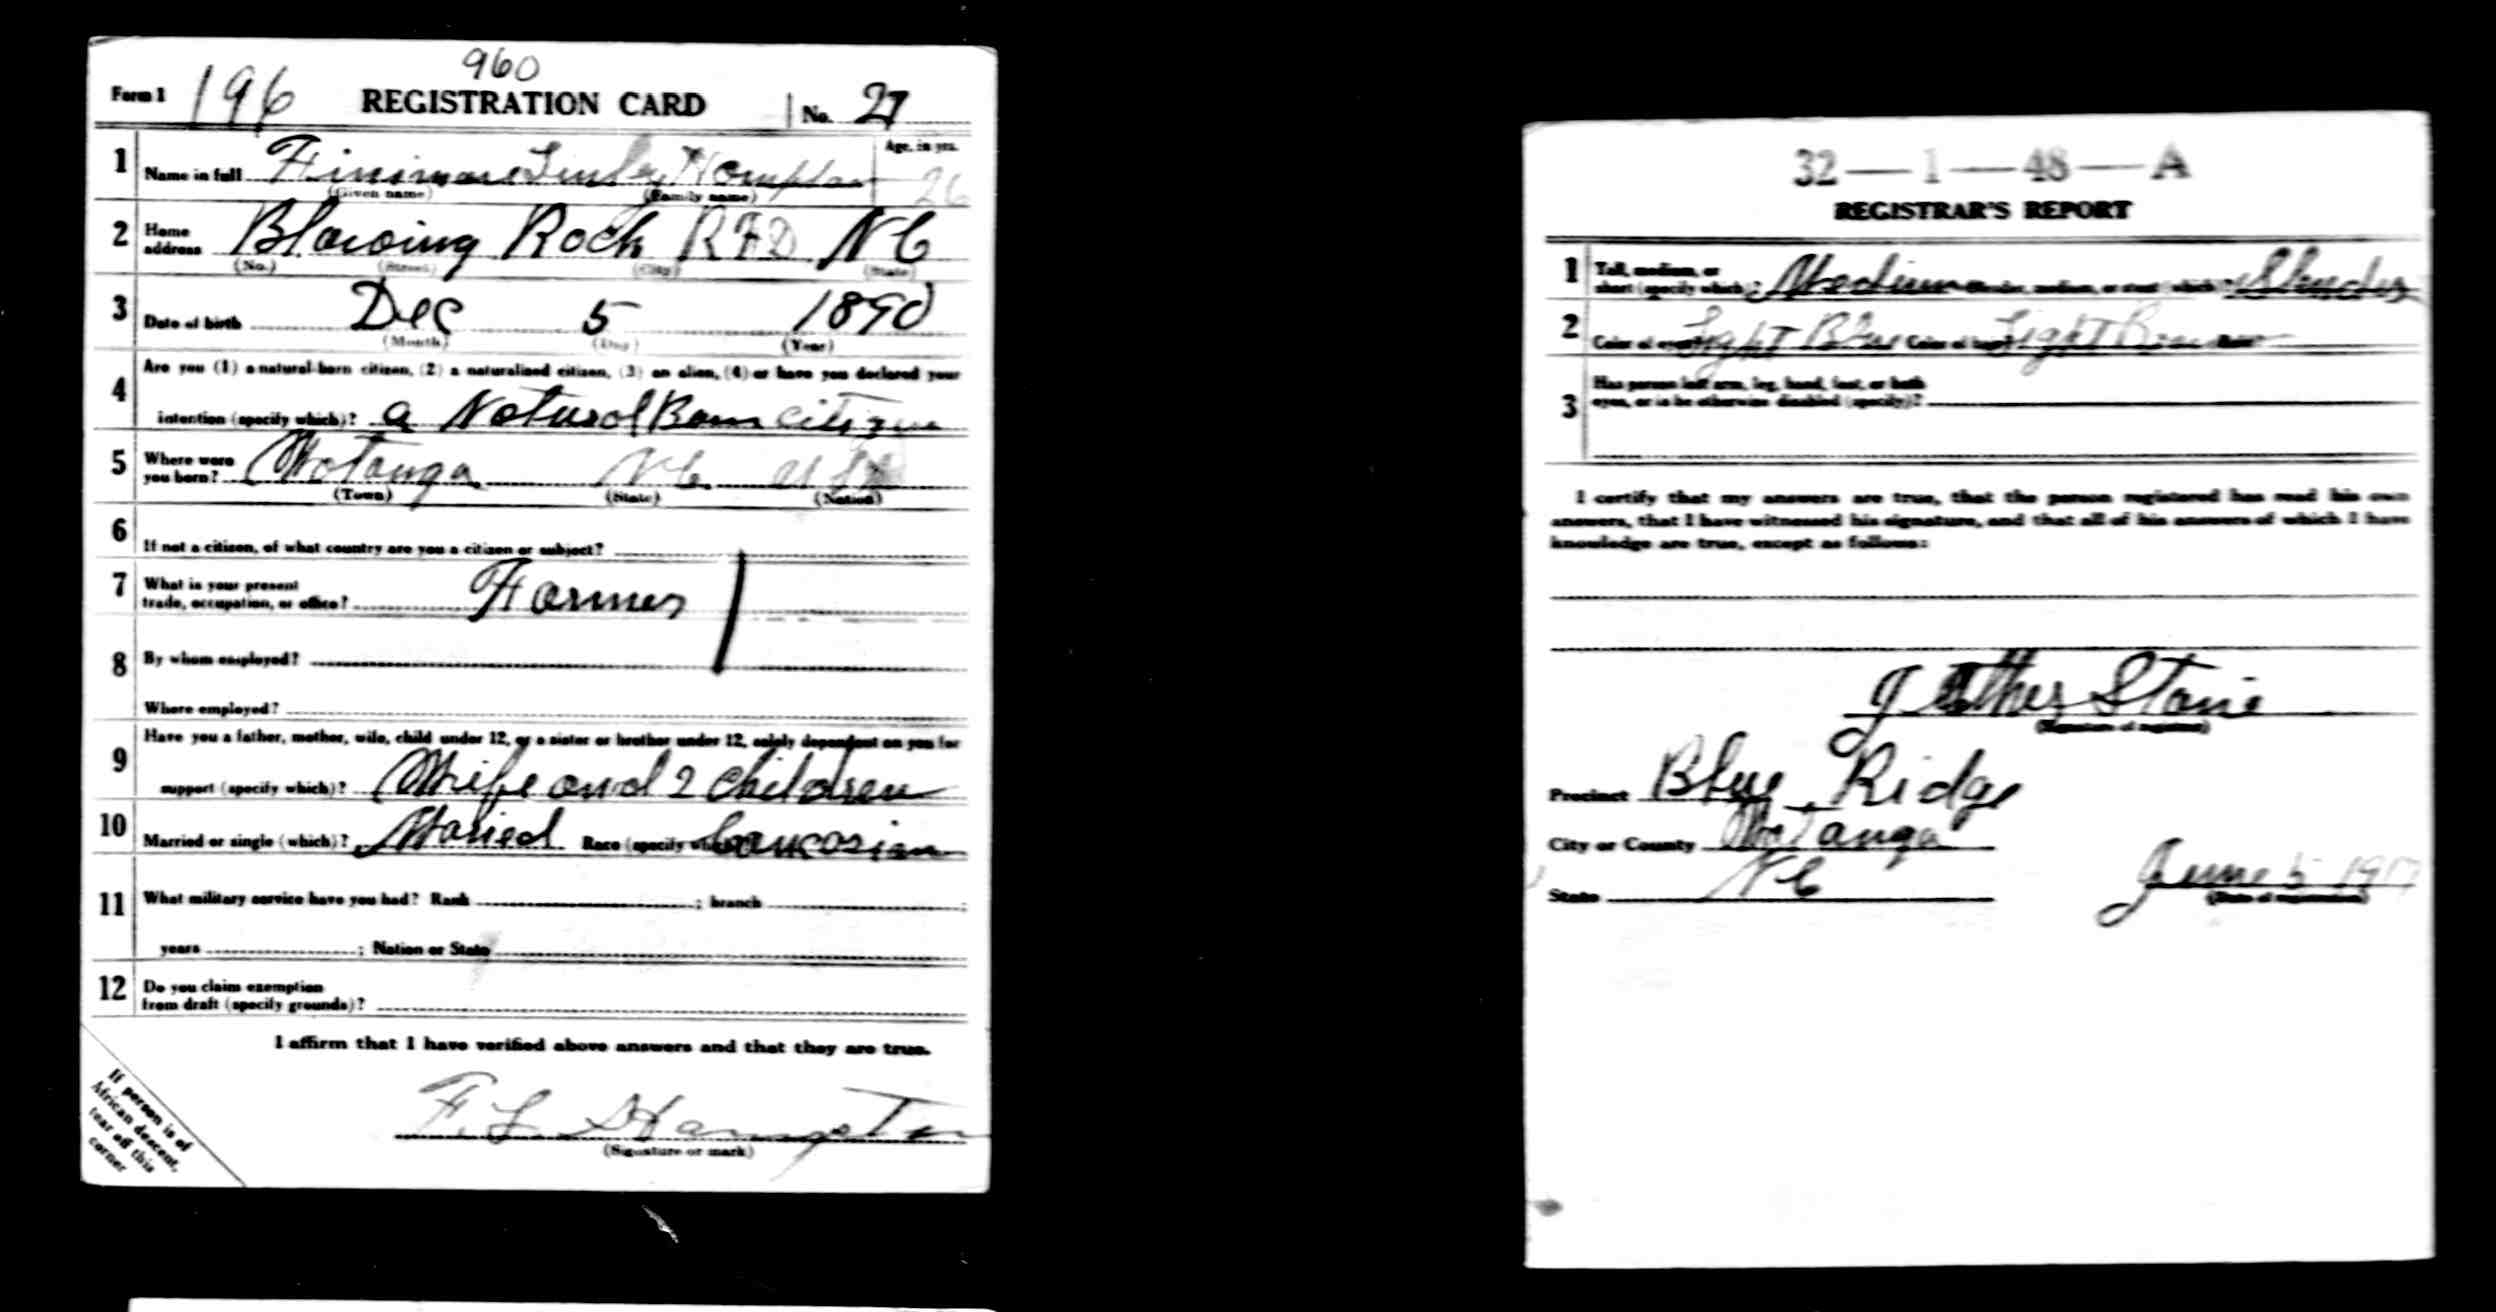 960
Form 1 196 REGISTRATION CARD No. 27
1 Name in full Hampton Age, in yrs. 26
(Given name) (Family name)
2 Home address Blowing Rock RFD NC
(No.) (Street) (City) (State)
3 Date of birth Dec 5 1890
(Month) (Day) (Year)
4 Are you (1) a natural-born citizen, (2) a naturalized citizen, (3) an alien, (4) or have you declared your
intention (specify which)? a Natural Born citizen
5 Where were you born? Watauga NC USA
(Town) (State) (Nation)
6 If not a citizen, of what country are you a citizen or subject?
7 What is your present
trade, occupation, or office? Farmer
8 By whom employed?
Where employed?
9 Have you a father, mother, wife, child under 12, or a sister or brother under 12, solely dependent on you for
support (specify which)? Wife and 2 children
10 Married or single (which)? Maried Race (specify which)? Caucasian
11 What military service have you had? Rank ; branch ;
years ; Nation or State
12 Do you claim exemption
from draft (specify grounds)?
I affirm that I have verified above answers and that they are true.
F. L. Hampton
(Signature or mark)
If person is of
African descent,
tear off this
corner
32-1-48-A
REGISTRAR'S REPORT
1 Tall, medium, or
short (specify which)? Medium Slender, medium, or stout (which)? Slender
2 Color of eyes Light Blue Color of hair Light Brown Bald?
3 Has person lost arm, leg, hand, foot, or both
eyes, or is he otherwise disabled (specify)?
I certify that my answers are true, that the person registered has read his own
answers, that I have witnessed his signature, and that all of his answers of which I have
knowledge are true, except as follows:
(Signature of registrar)
Precinct Blue Ridge
City or County Watauga
State NC June 5 1917
(Date of registration)